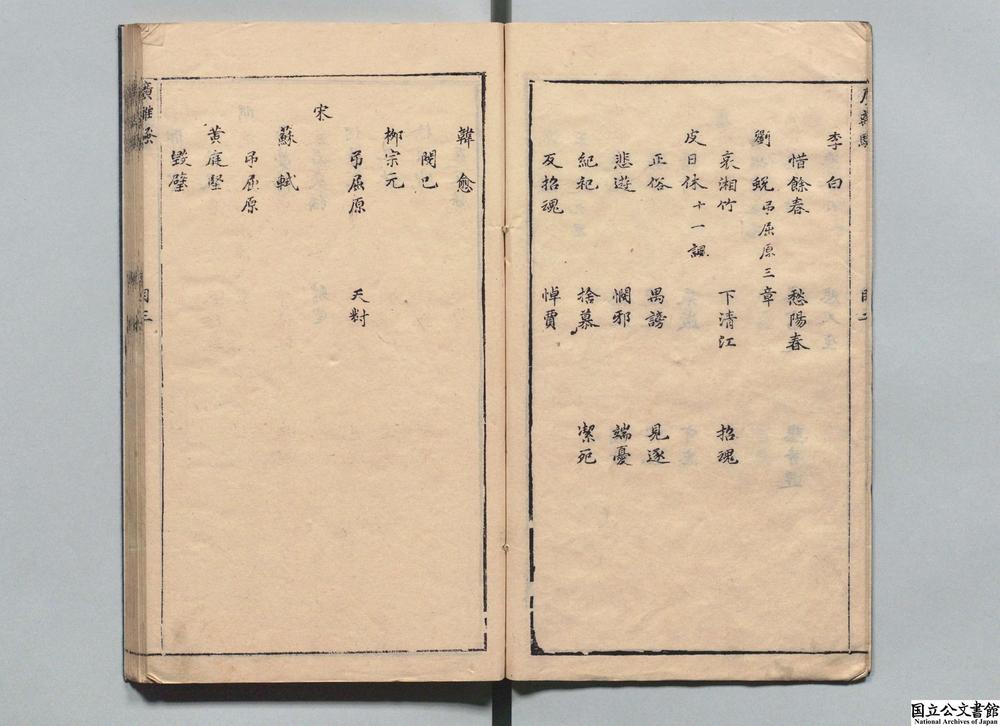 李白
惜餘春 愁陽春
劉蛻 弔屈原三章
哀湘竹 下清江 招魂
皮日休 十一諷
正俗 遇謗 見逐
悲遊 憫邪 端憂
紀祀 捨慕 潔死
反招魂 悼賈
目二
韓愈
閔己
柳宗元
弔屈原 天對
宋
蘇軾
弔屈原
黃庭堅
毀璧
廣離騷
目三
国立公文書館
National Archives of Japan